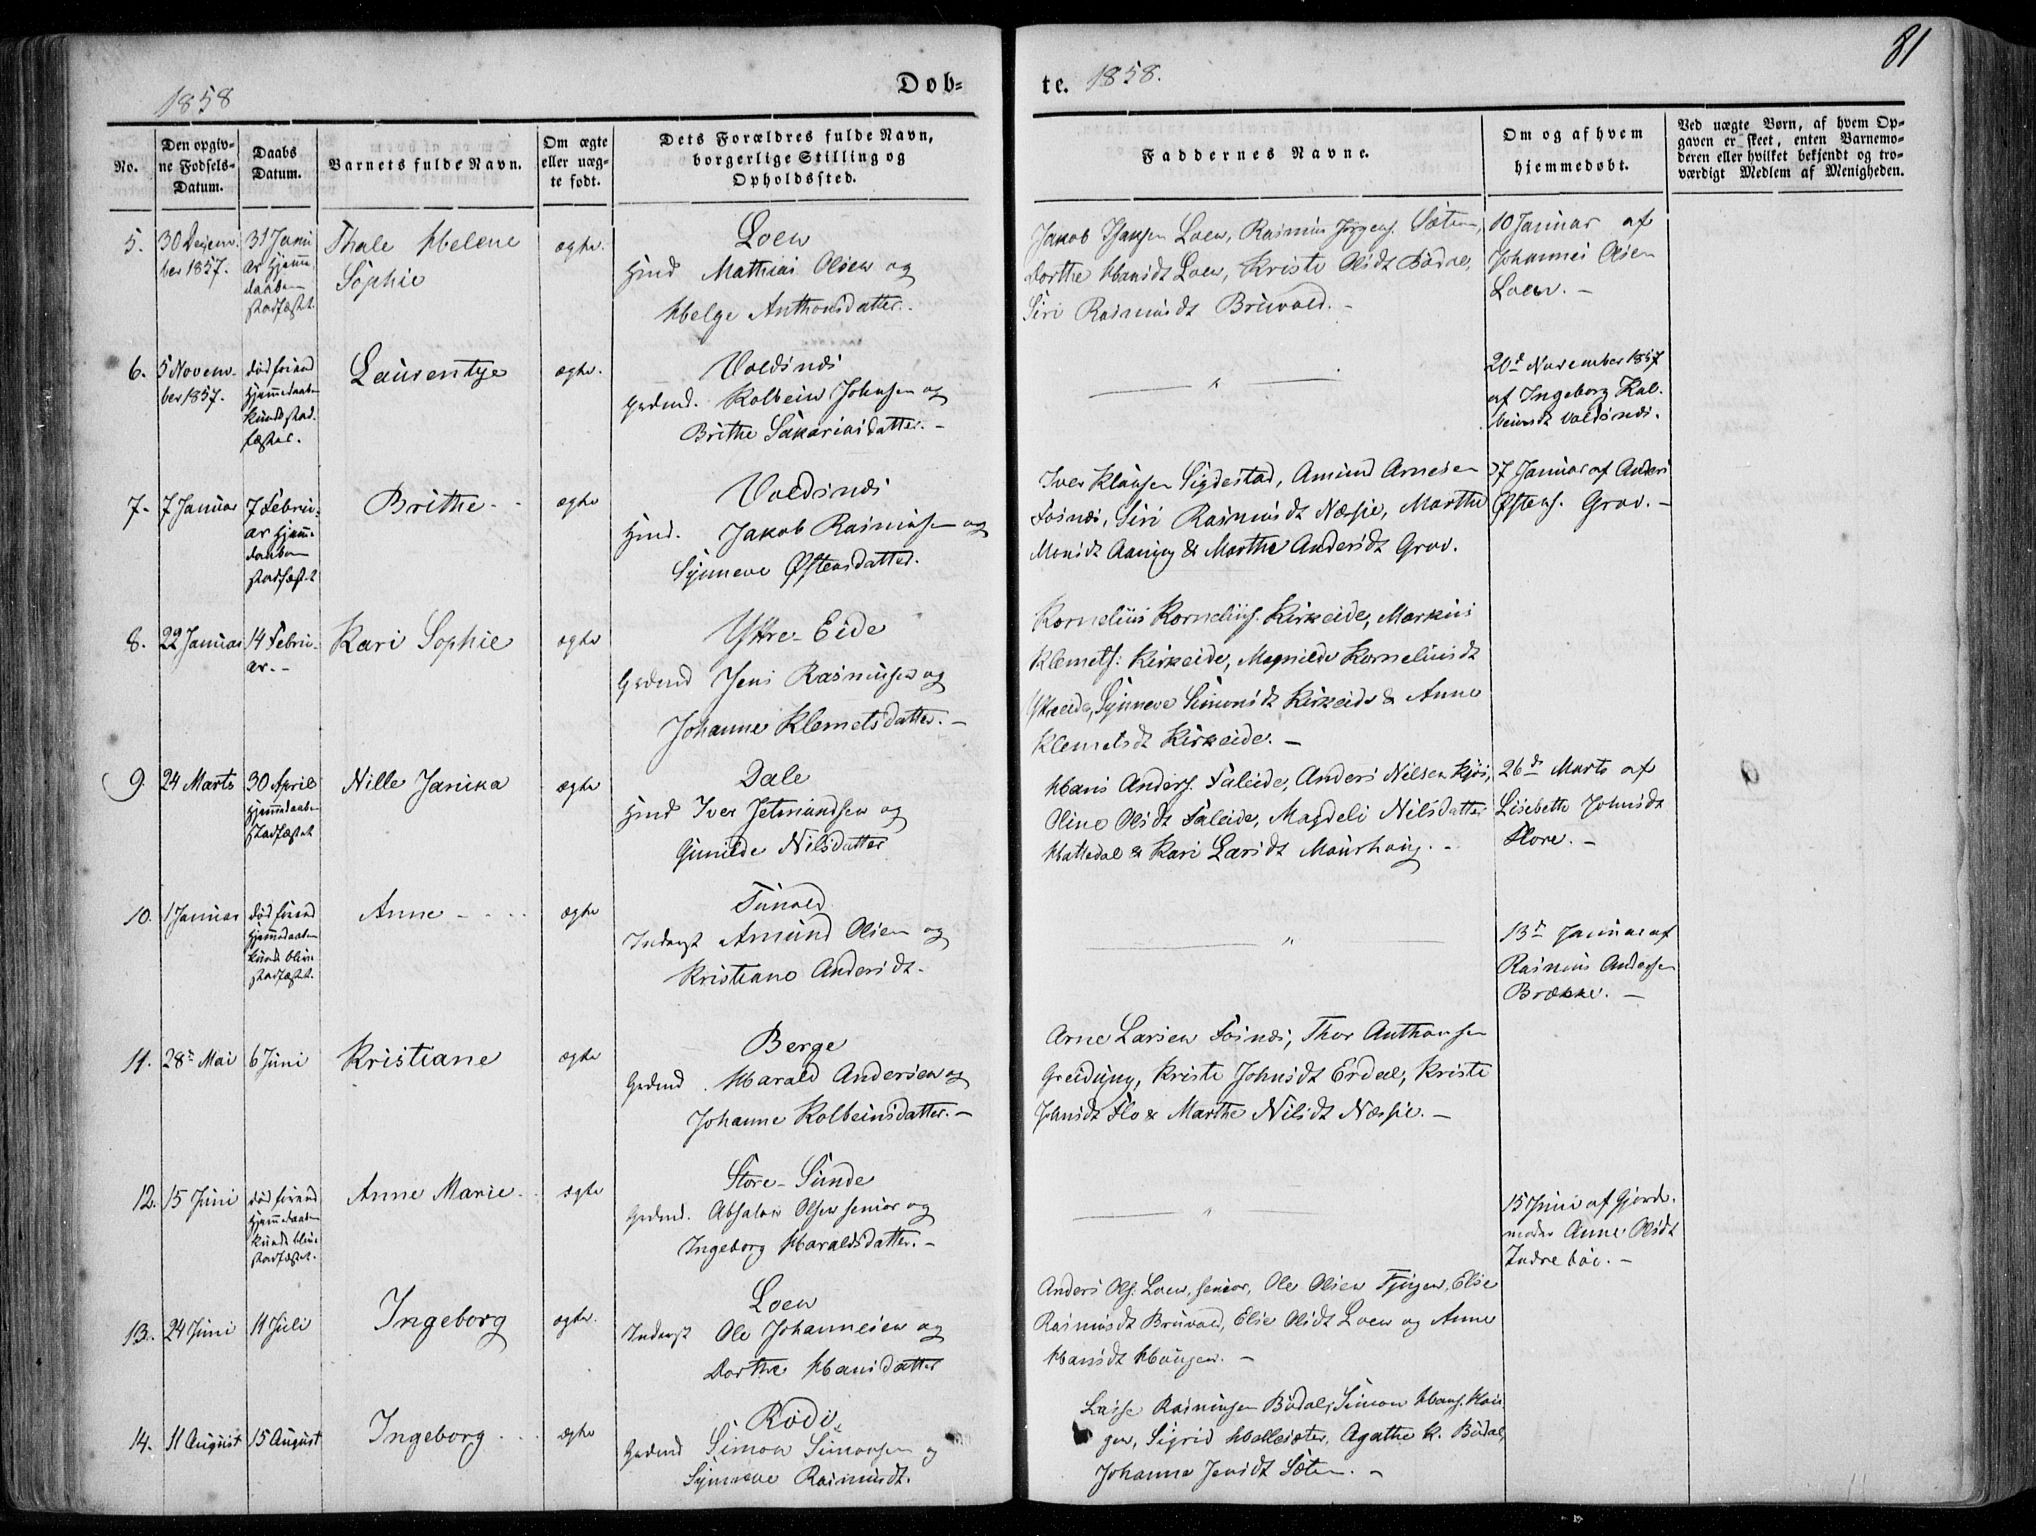 81
1858
Døb-
te. 1858.
No.
Den opgiv-
ne Fødsels-
Datum.
Daabs
Datum.
Barnets fulde Navn.
Om ægte
eller uæg-
te født.
Dets Forældres fulde Navn,
borgerlige Stilling og
Opholdssted.
Faddernes Navne.
Om og af hvem
hjemmedøbt.
Ved uægte Børn, af hvem Op-
gaven er skeet, enten Barnemo-
deren eller hvilket bekjendt og tro-
værdigt Medlem af Menigheden.
5.
30 Decem-
ber 1857.
31 Janu
ar Hjemme
daaben
stadfæstet
Thale Helene
Sophie
ægte.
Loen
Mathias Olsen og
Helge Anthonsdatter.
Jakob Loen, Rasmus Jørgens. Sæten,
Dorthe Hansdt Loen, Kristi Olsdt Bødal,
Siri Rasmusdt Bruvold. -
10 Januar af
Johannes Olsen
Loen. -
6.
5 Novem-
ber 1857.
død forind
Hjemmedaaben
kunde stad-
fæstes.
Laurentze
ægte.
Voldsnæs
Grdmd. Kolbein Johnsen og
Brithe Sakariasdatter. -
"
20d November 1857
af Ingeborg Kol-
beinsdt Voldsnæs.
7-
7 Januar
7 Febru-
ar Hjemme
daaben
stadfæstet
Brithe -
ægte
Voldsnæs
Hmd. Jakob Rasmusen og
Synneve Østensdatter.
Iver Klausen Sigdestad, Amund Arnesen
Fosnæs, Siri Rasmusdt Næssie, Marthe
Monsdt & Marthe Andersdt Grov.
7 Januar af Anders
Østens. Grov. -
8.
22 Januar
14 Febru-
ar. -
Kari Sophie
ægte
Ytre-Eide
Grdmd Jens Rasmusen og
Johanne Klemetsdatter. -
Kornelius Kornelius. Kirkeide, Markus
Klemets: Kirkeide, Magnilde Korneliusdt
Ytreeide, Synneve Simonsdt Kirkeide & Anne
Klemetsdt Kirkeide. -
9.
24 Marts
30 April
Hjemmedaaben
stadfæstet
Nille Janika
ægte
Dale
Hmd Iver Jetmundsen og
Gunilde Nilsdatter
Hans Anders. Faleide, Anders Nilsen Kjøs,
Oline Olsdt Faleide, Magdeli Nilsdatter
Hattedal & Kari Larsdt Maurhaug. -
26d Marts af
Lisebethe Johnsdt
Flore. -
10.
1 Januar
død forind
Hjemmedaaben
kunde blive
stadfæstet.
Anne - . . .
ægte
Tunold
Inderst Amund Olsen og
Kristiane Andersdt.
"
13de Januar af
Rasmus Andersen
Brække. -
11.
28de Mai
6 Juni
Kristiane
ægte
Berge
Grdmd. Harald Andersen og
Johanne Kolbeinsdatter. -
Arne Larsen Fosnæs, Thor Anthonsen
Greidung, Kristi Johnsdt Erdal, Kristi
Johnsdt Flo & Marthe Nilsdt Næssie. -
12.
15 Juni
død forind
Hjemmedaaben
kunde blive
stadfæstet.
Anne Marie.
ægte
Store-Sunde
Grdmd. Absalon Olsen senior og
Ingeborg Haraldsdatter. -
"
15 Juni af Gjorde-
moder Anne Olsdt
Indre bøe. -
13.
24 Juni
11 Juli
Ingeborg
ægte.
Loen
Inderst Ole Johannesen og
Dorthe Hansdatter
Anders Ols. Loen, senior, Ole Olsen Tjugen, Elie
Rasmusdt Bruvold, Elie Olsdt Loen og Anne
Hansdt Haugen. -
14.
11 August
15 August
Ingeborg . . .
ægte
Rødi
Grdmd Simon Simonsen og
Synneve Rasmusdt.
Lasse Rasmusen Bødal, Simon Hans. Hau
gen, Sigrid Hellesæter, Agathe R. Bødal,
Johanne Jensdt Sæten. -